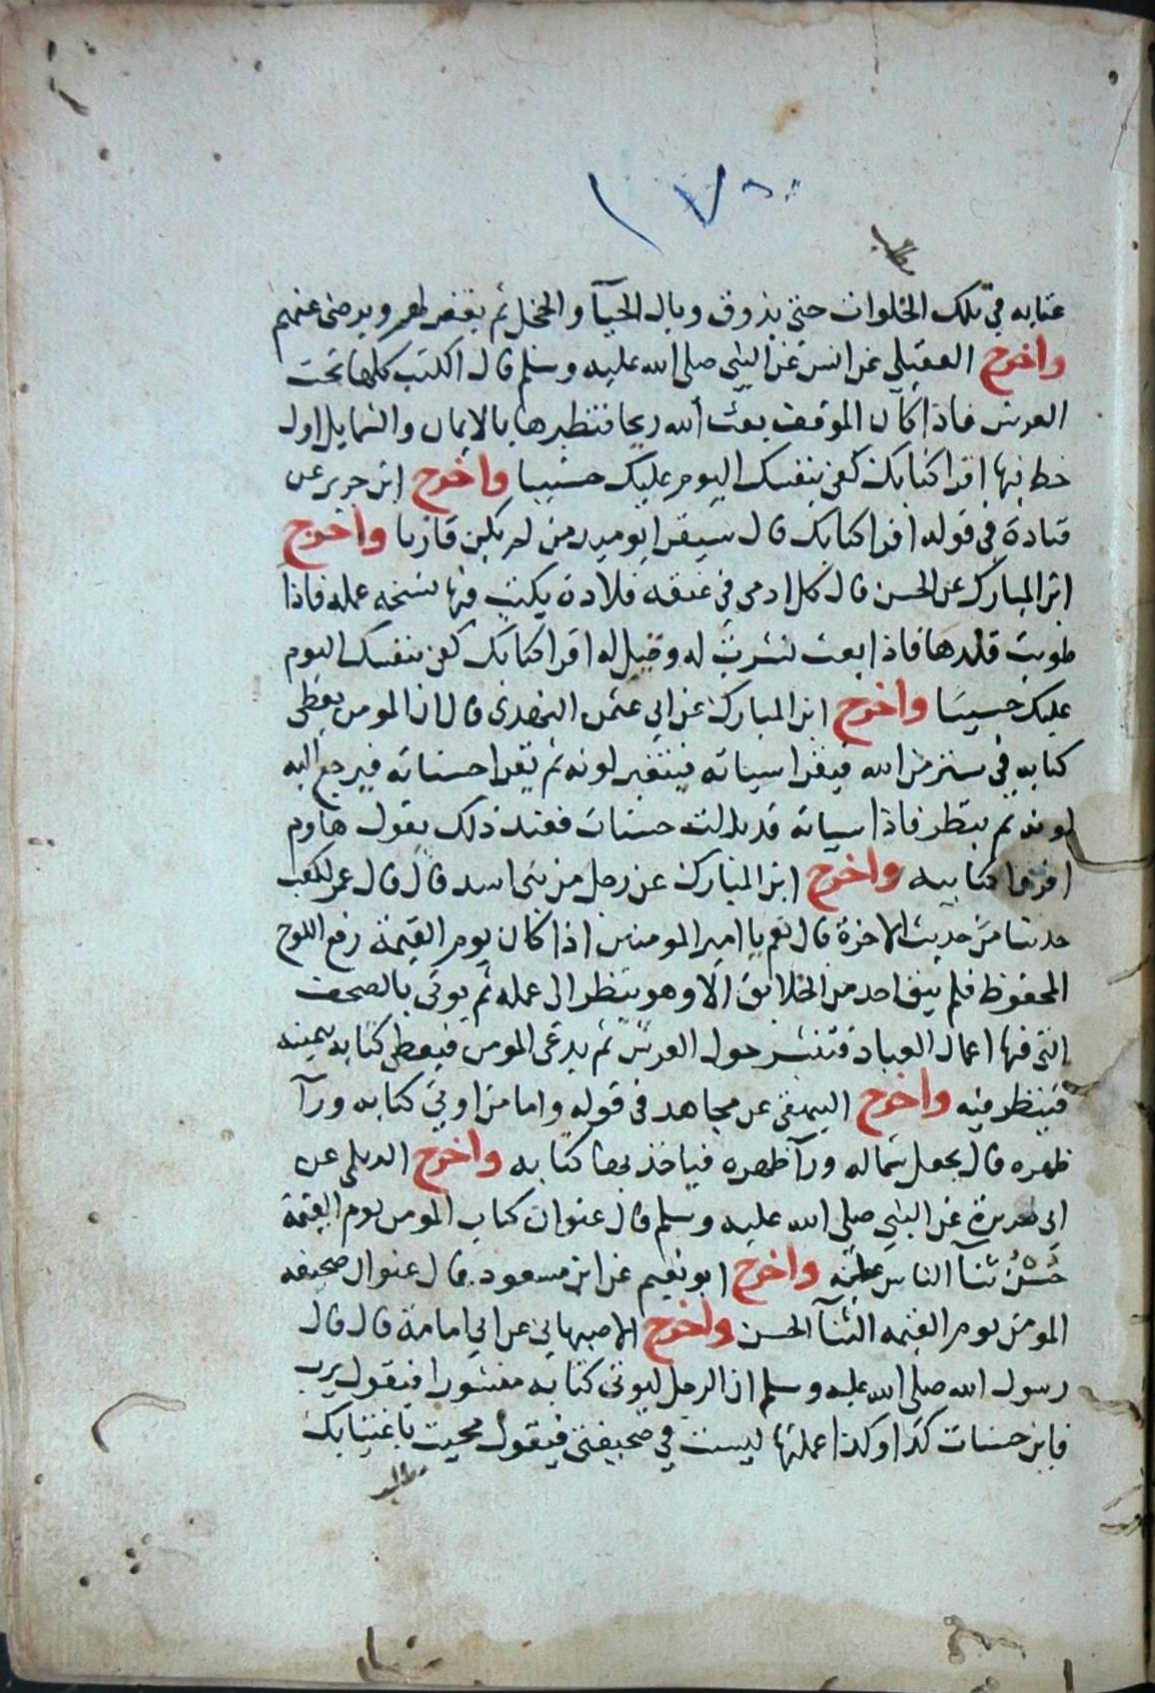 ١٧
عتابه في تلك الخلوات حتى يذوق وبال الحيآ والخجل ثم يغفر لهم ويرضى عنهم
واخرج العقيلي عن انس عن النبي صلى الله عليه وسلم قال الكتب كلها تحت
العرش فاذا كان الموقف بعث الله ريحا فتطيرها بالايمان والشمايل اول
خط فيها اقرا كتابك كفى بنفسك اليوم عليك حسيبا واخرج ابن جرير عن
قتادة في قوله اقرا كتابك قال سيقرا يوميذ من لم يكن قاريا واخرج
ابن المبارك عن الحسن قال كل ادمي في عنقه قلادة يكتب فيها نسخه عمله فاذا
طويت قلدها فاذا بعث نشرت له وقيل له اقرا كتابك كفى بنفسك اليوم
عليك حسيبا واخرج ابن المبارك عن ابي عثمن النهدى قال ان المومن يعطى
كتابه في ستر من الله فيقرا سياته فيتغير لونه ثم يقرا حسناته فيرجع اليه
لونه ثم ينظر فاذا سياته قد بدلت حسنات فعند ذلك يقول هاوم
اقروا كتابيه واخرج ابن المبارك عن رجل من بنى اسد قال قال عمر لكعب
حدثنا من حديث الاخرة قال نعم يا امير المومنين اذا كان يوم القيمة رفع اللوح
المحفوظ فلم يبق احد من الخلايق الا وهو ينظر الى عمله ثم يوتى بالصحف
التى فيها اعمال العباد فتنشر حول العرش ثم يدعى المومن فيعطى كتابه بيمينه
فينظر فيه واخرج البيهقى عن مجاهد في قوله واما من اوتي كتابه ورآ
ظهره قال يجعل شماله ورآ ظهره فياخذ بها كتابه واخرج الديلمي عن
ابي هريرة عن النبي صلى الله عليه وسلم قال عنوان كتاب المومن يوم القيمة
حُسْنُ ثنآ الناس عليه واخرج ابو نعيم عن ابن مسعود قال عنوان صحيفه
المومن يوم القيمه الثنآ الحسن واخرج الاصبهاني عن ابي امامة قال قال
رسول الله صلى الله عليه وسلم ان الرجل ليوتى كتابه منشورا فيقول يرب
فاين حسنات كذا وكذا عملتها ليست في صحيفتى فيقول محيت باغتيابك